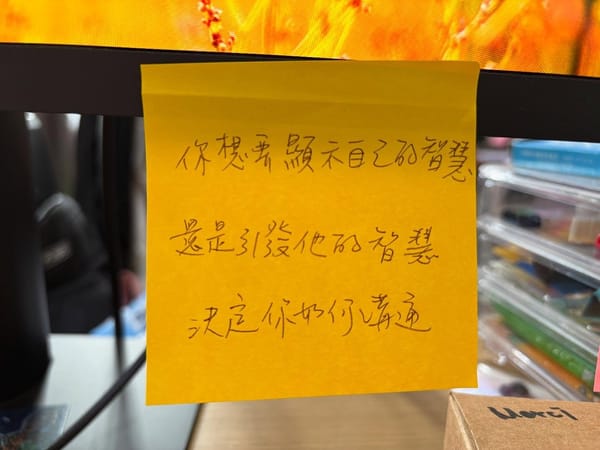 你想要顯示自己的智慧
還是引發他的智慧
決定你如何溝通
Merci